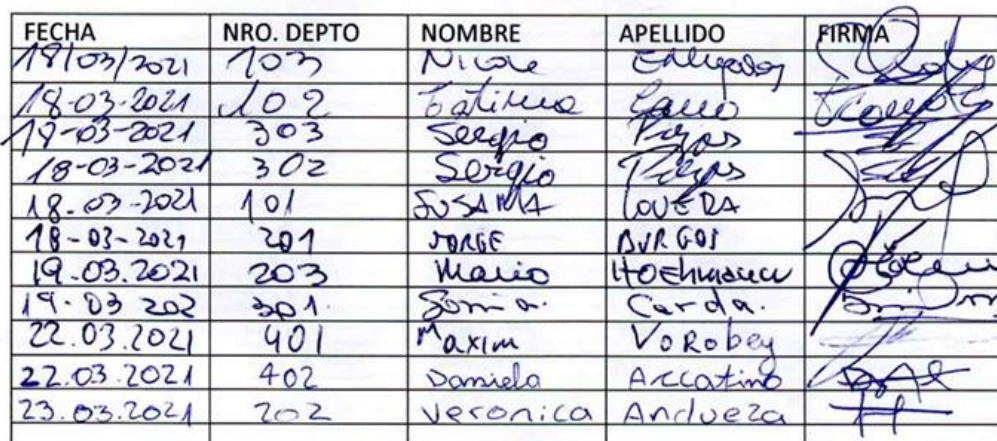 FECHA NRO. DEPTO NOMBRE APELLIDO FIRMA
18/03/2021 103 Nicole
18-03-2021 102 Fatima Cano
19-03-2021 303 Sergio Rojas
18-03-2021 302 Sergio Rojas
18-03-2021 101 SUSANA LOVERA
18-03-2021 201 JORGE BURGOS
19.03.2021 203 Mario HOEhmann
19-03 202 301. Sonia. Cerda.
22.03.2021 401 Maxim Vorobey
22.03.2021 402 Daniela Accatino
23.03.2021 202 Veronica Andueza